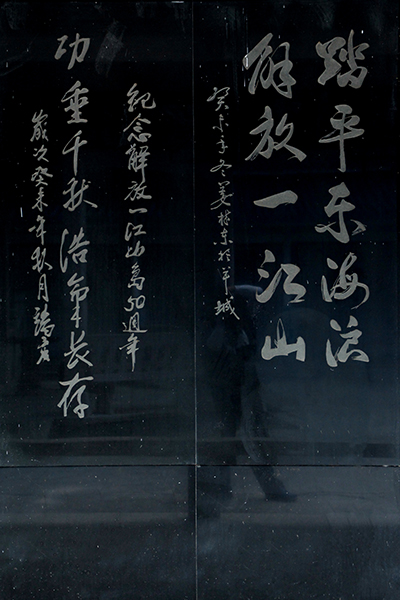 踏平东海浪
解放一江山
癸未年冬姜林东於羊城
紀念解放一江山島50週年
功垂千秋浩氣长存
歲次癸未年秋月